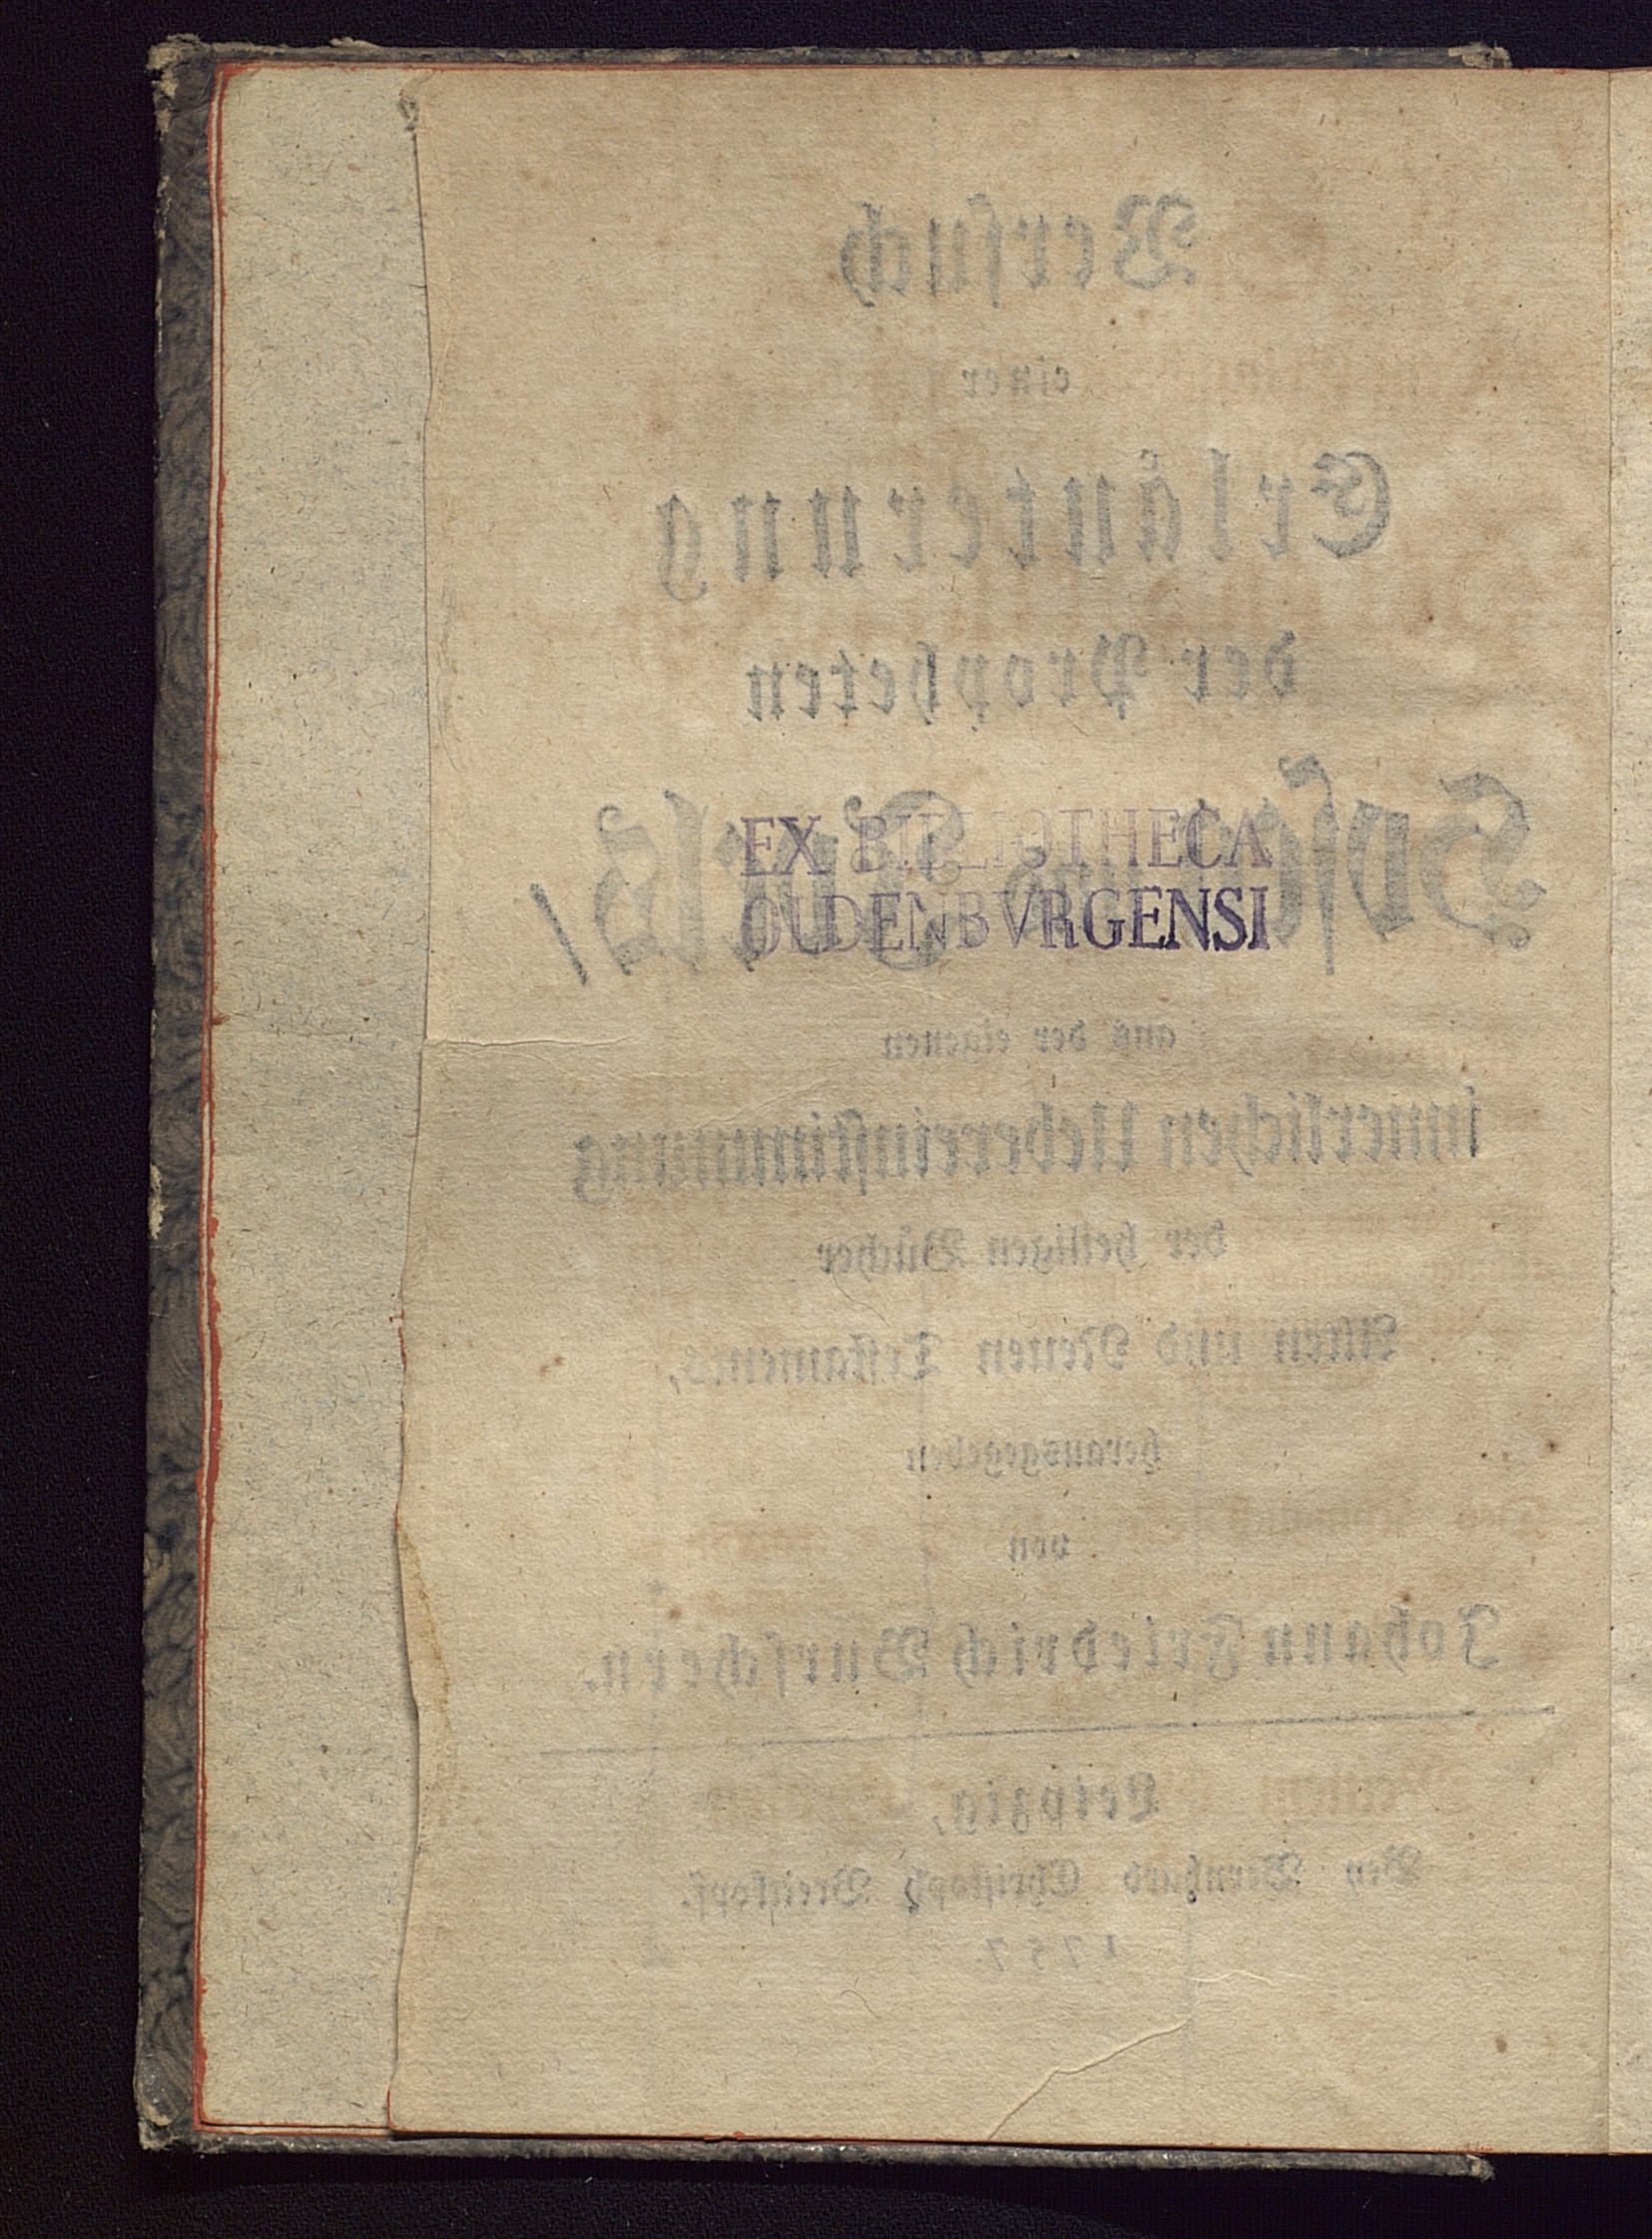 Versuch
einer
Erläuterung
der Propheten
Hoseas, Joels/
EX BIBLIOTHECA
OLDENBVRGENSI
aus der eigenen
innerlichen Uebereinstimmung
der heiligen Bücher
Alten und Neuen Testaments,
herausgegeben
von
Johann Friedrich Burschern.
Leipzig,
Bey Bernhard Christoph Breitkopf.
1757.